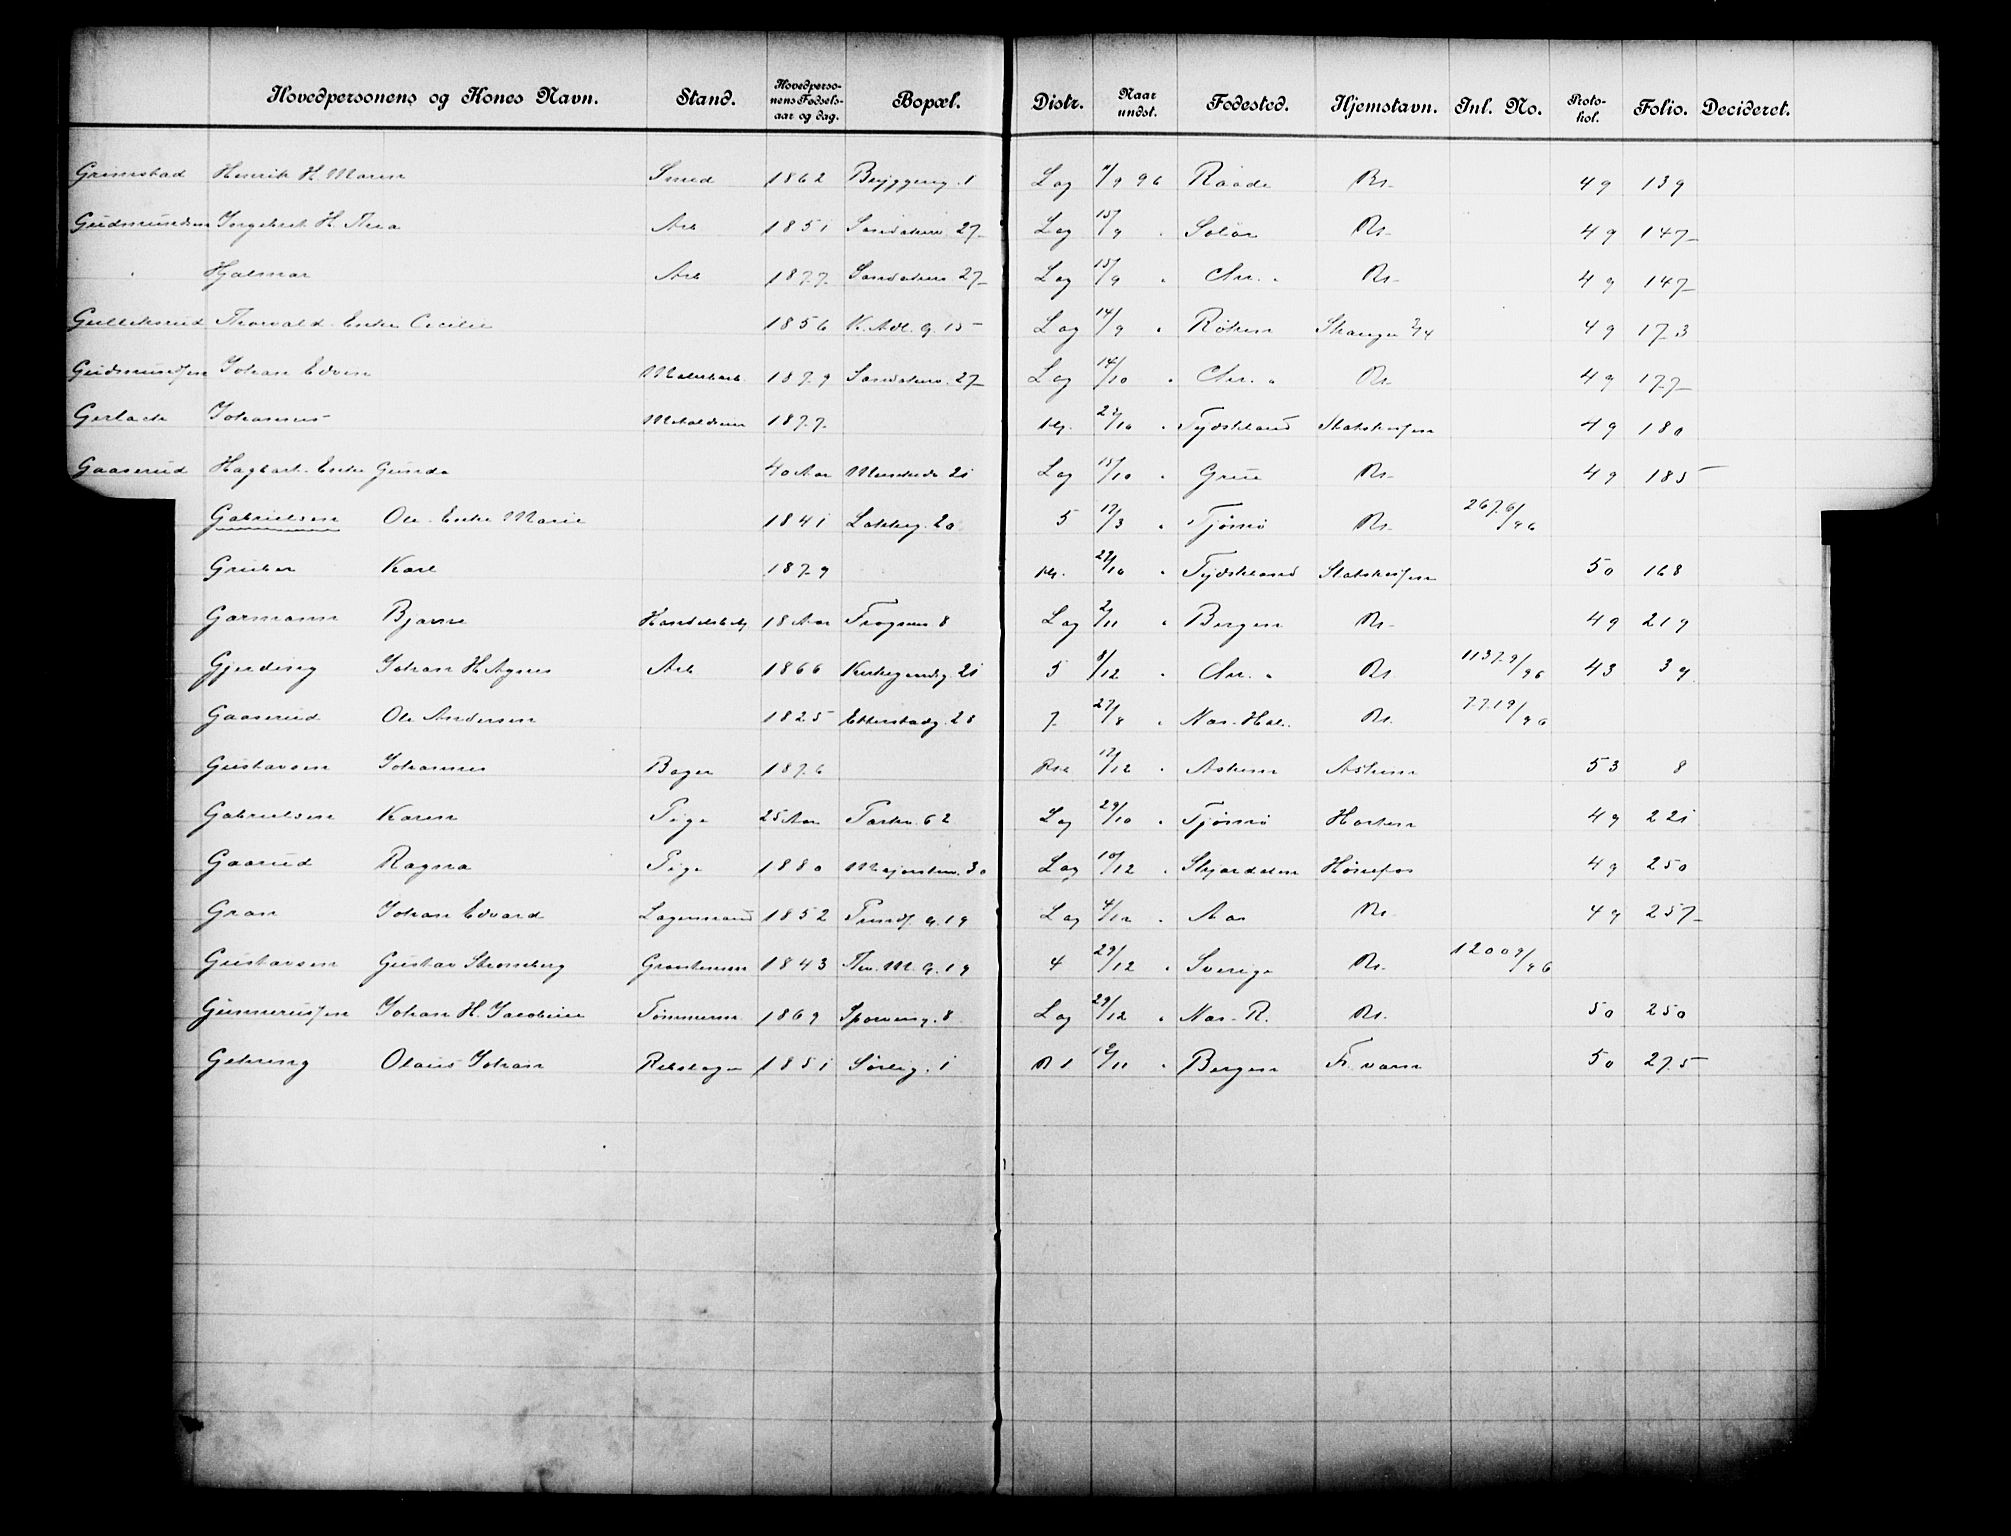 Hovedpersonens og Kones Navn. Stand. Hovedpersonens Fødselsaar og dag. Bopæl. Distr. Naar undst. Fødested. Hjemstavn. Inl. No. Protokol. Folio. Decideret.
Grimstad Henrik H. Maren Smed 1862 Bryggerig. 1 Lag 9 96 Raade Kr. 49 139
Gudmundsen Ingebret H. Thea Arb 1851 Sandakerv. 27 Lag 15/9 Solør Kr. 49 147
" Hjalmar Arb 1877 Sandakerv. 27 Lag 15/9 " Chr. " Kr. 49 147
Gulliksrud Thorvald Enke Cecilie 1856 K. Adl. g. 15 Lag 14/9 " Røken Stange 49 173
Gudmundsen Johan Edvin Malerharb. 1879 Sandakerv. 27 Lag 14/10 " Chr. " Kr. 49 177
Gerlach Johannes 1877 Tydskland Statskassen 49 180
Gaaserud Hagbart Enke Gunda 40 Aar 21 Lag 15/10 " Grue Kr. 49 185
Gabrielsen Ole Enke Marie 1841 Lakkeg. 20 5 17/3 " Tjømø Kr. 2676/96
Gruber Karl 1879 29/10 " Tydskland Statskassen 50 168
Garmann Bjarne 18 Aar Frognerv 8 Lag 2/11 " Bergen Kr. 49 219
Gjerding Johan H. Agnes Arb 1866 Kirkegaardsg. 21 5 8/12 " Chr. " Kr. 11379/96 43 39
Gaaserud Ole Andersen 1825 Etterstadg. 28 7 27/8 " Nas. Hal. Kr. 7719/96
Gustavsen Johannes Bager 1876 17/12 " Askim Askim 53 8
Gabrielsen Karen Pige 25 Aar Parkv. 62 Lag 29/10 " Tjømø Horten 49 221
Gaarud Ragna Pige 1880 Majorstuv. 30 Lag 10/12 " Stjørdalen Hønefos 49 250
Gran Johan Edvard Lagermand 1852 Trondhj. g. 19 Lag 4/12 " Aas Kr. 49 257
Gustavsen Gustav Strømberg 1843 Thv. M. g. 19 4 29/12 " Sverige Kr. 12009/96
Gunnerussen Johan H. Jacobine Tømmerm. 1869 Sporveisg. 8 Lag 29/12 " Nas. R. Kr. 50 250
Gehring Olaus Johan Rebslager 1851 Sørlig. 1 12/11 " Bergen Fr. værn 50 275